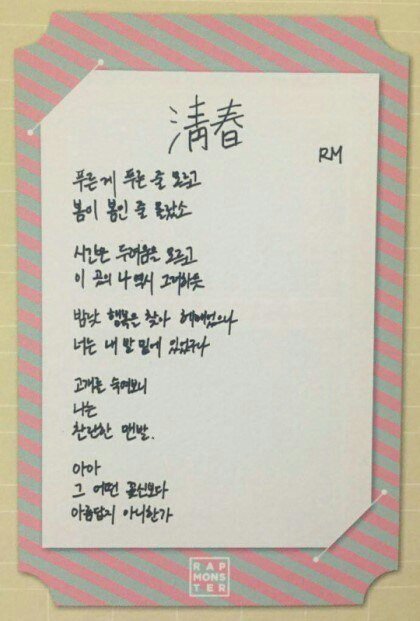 清春
RM
푸른 게 푸른 줄 모르고
봄이 봄인 줄 몰랐소
시간은 두려움을 모르고
이 곳의 나 역시 그러하듯
밤낮 행복을 찾아 헤매었으나
너는 내 발 밑에 있었구나
고개를 숙여보니
나는
찬란한 맨발.
아아
그 어떤 꽃신보다
아름답지 아니한가
RAP
MONS
TER